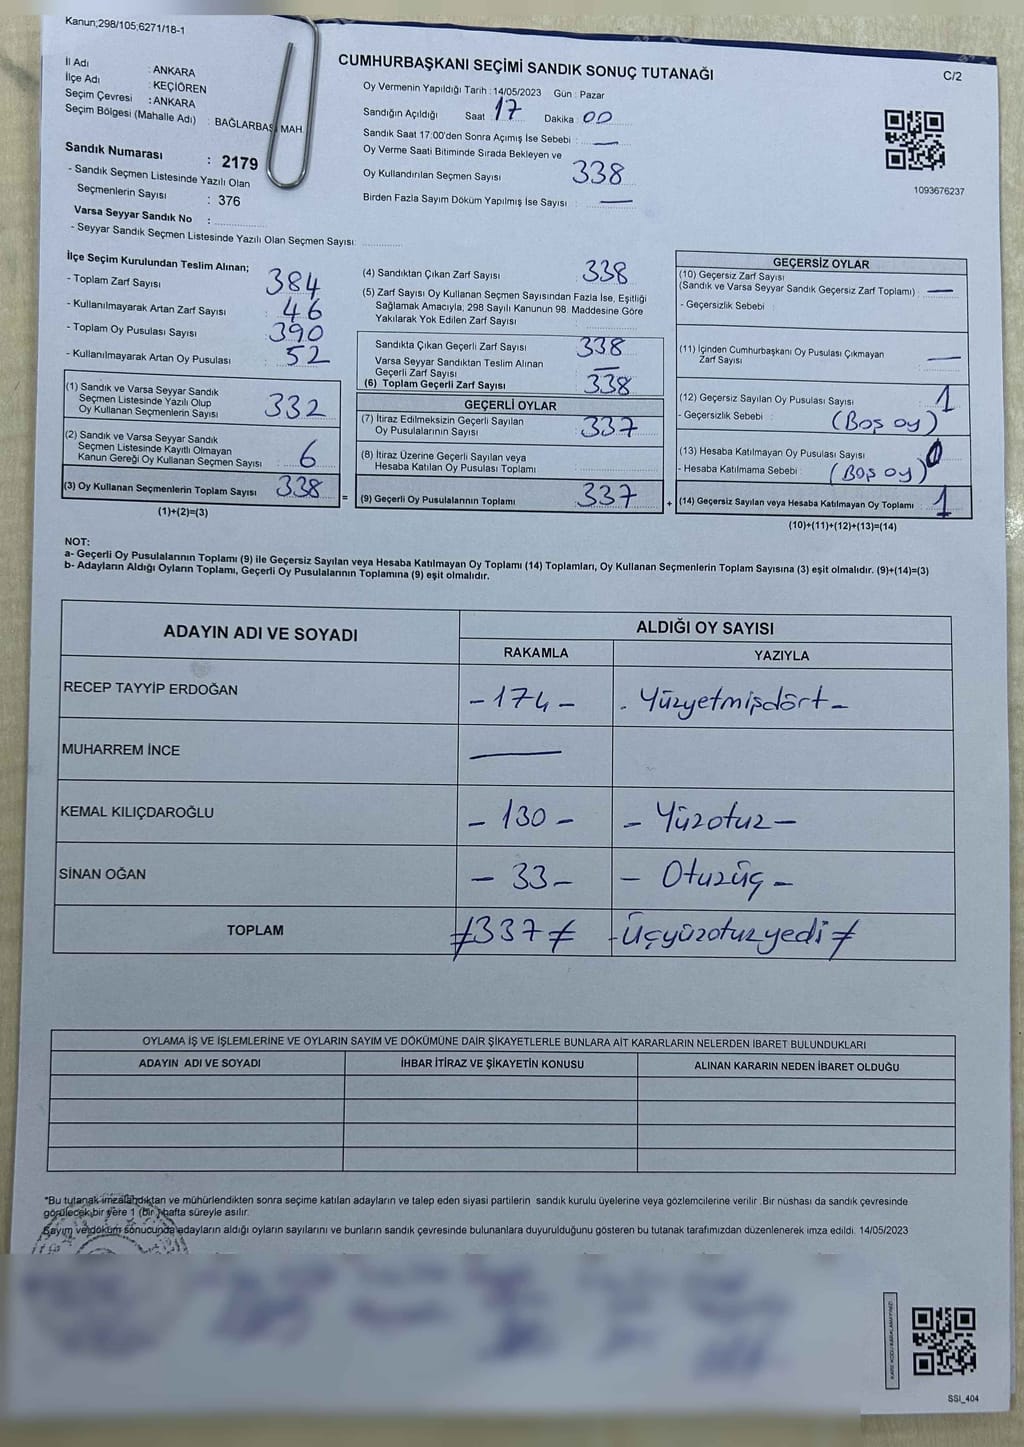 Kanun;298/105;6271/18-1
İl Adı : ANKARA
İlçe Adı : KEÇİÖREN
Seçim Çevresi : ANKARA
Seçim Bölgesi (Mahalle Adı) : BAĞLARBAŞI MAH.
Sandık Numarası : 2179
- Sandık Seçmen Listesinde Yazılı Olan
Seçmenlerin Sayısı : 376
Varsa Seyyar Sandık No :
- Seyyar Sandık Seçmen Listesinde Yazılı Olan Seçmen Sayısı:
CUMHURBAŞKANI SEÇİMİ SANDIK SONUÇ TUTANAĞI
C/2
Oy Vermenin Yapıldığı Tarih : 14/05/2023 Gün : Pazar
Sandığın Açıldığı Saat 17 Dakika : 00
Sandık Saat 17:00'den Sonra Açımış İse Sebebi : —
Oy Verme Saati Bitiminde Sırada Bekleyen ve
Oy Kullandırılan Seçmen Sayısı 338
Birden Fazla Sayım Döküm Yapılmış İse Sayısı : —
1093676237
İlçe Seçim Kurulundan Teslim Alınan;
- Toplam Zarf Sayısı : 384
- Kullanılmayarak Artan Zarf Sayısı : 46
- Toplam Oy Pusulası Sayısı : 390
- Kullanılmayarak Artan Oy Pusulası : 52
(1) Sandık ve Varsa Seyyar Sandık
Seçmen Listesinde Yazılı Olup
Oy Kullanan Seçmenlerin Sayısı : 332
(2) Sandık ve Varsa Seyyar Sandık
Seçmen Listesinde Kayıtlı Olmayan
Kanun Gereği Oy Kullanan Seçmen Sayısı : 6
(3) Oy Kullanan Seçmenlerin Toplam Sayısı : 338
(1)+(2)=(3)
(4) Sandıktan Çıkan Zarf Sayısı : 338
(5) Zarf Sayısı Oy Kullanan Seçmen Sayısından Fazla İse, Eşitliği
Sağlamak Amacıyla, 298 Sayılı Kanunun 98. Maddesine Göre
Yakılarak Yok Edilen Zarf Sayısı :
Sandıkta Çıkan Geçerli Zarf Sayısı : 338
Varsa Seyyar Sandıktan Teslim Alınan
Geçerli Zarf Sayısı : —
(6) Toplam Geçerli Zarf Sayısı : 338
GEÇERLİ OYLAR
(7) İtiraz Edilmeksizin Geçerli Sayılan
Oy Pusulalarının Sayısı : 337
(8) İtiraz Üzerine Geçerli Sayılan veya
Hesaba Katılan Oy Pusulası Toplamı :
= (9) Geçerli Oy Pusulalarınnın Toplamı : 337 +
GEÇERSİZ OYLAR
(10) Geçersiz Zarf Sayısı
(Sandık ve Varsa Seyyar Sandık Geçersiz Zarf Toplamı) : —
- Geçersizlik Sebebi :
(11) İçinden Cumhurbaşkanı Oy Pusulası Çıkmayan
Zarf Sayısı : —
(12) Geçersiz Sayılan Oy Pusulası Sayısı : 1
- Geçersizlik Sebebi : (Boş oy)
(13) Hesaba Katılmayan Oy Pusulası Sayısı : 0
- Hesaba Katılmama Sebebi : (Boş oy)
(14) Geçersiz Sayılan veya Hesaba Katılmayan Oy Toplamı : 1
(10)+(11)+(12)+(13)=(14)
NOT:
a- Geçerli Oy Pusulalarının Toplamı (9) ile Geçersiz Sayılan veya Hesaba Katılmayan Oy Toplamı (14) Toplamları, Oy Kullanan Seçmenlerin Toplam Sayısına (3) eşit olmalıdır. (9)+(14)=(3)
b- Adayların Aldığı Oyların Toplamı, Geçerli Oy Pusulalarının Toplamına (9) eşit olmalıdır.
ADAYIN ADI VE SOYADI ALDIĞI OY SAYISI
RAKAMLA YAZIYLA
RECEP TAYYİP ERDOĞAN - 174 - - Yüzyetmişdört -
MUHARREM İNCE —
KEMAL KILIÇDAROĞLU - 130 - - Yüzotuz -
SİNAN OĞAN - 33 - - Otuzüç -
TOPLAM ≠337≠ - Üçyüzotuzyedi ≠
OYLAMA İŞ VE İŞLEMLERİNE VE OYLARIN SAYIM VE DÖKÜMÜNE DAİR ŞİKAYETLERLE BUNLARA AİT KARARLARIN NELERDEN İBARET BULUNDUKLARI
ADAYIN ADI VE SOYADI İHBAR İTİRAZ VE ŞİKAYETİN KONUSU ALINAN KARARIN NEDEN İBARET OLDUĞU
*Bu tutanak imzalandıktan ve mühürlendikten sonra seçime katılan adayların ve talep eden siyasi partilerin sandık kurulu üyelerine veya gözlemcilerine verilir. Bir nüshası da sandık çevresinde
görülecek bir yere 1 (bir) hafta süreyle asılır.
Sayım ve döküm sonucunda adayların aldığı oyların sayılarını ve bunların sandık çevresinde bulunanlara duyurulduğunu gösteren bu tutanak tarafımızdan düzenlenerek imza edildi. 14/05/2023
SSI_404